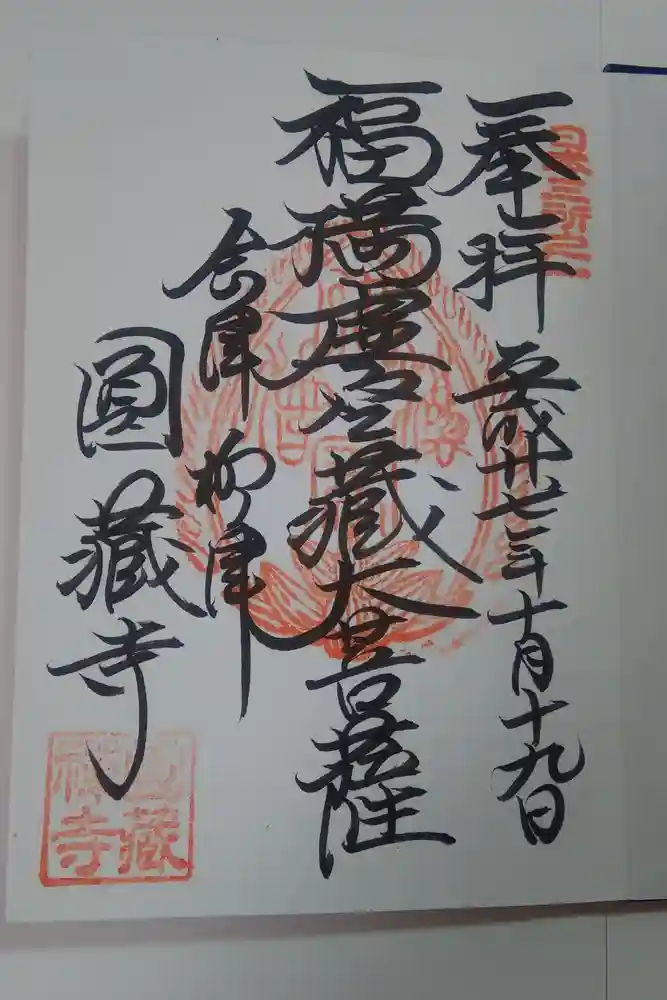 奉拝 平成廿七年十月十九日
福満虚空藏大菩薩
会津 柳津
圓藏寺